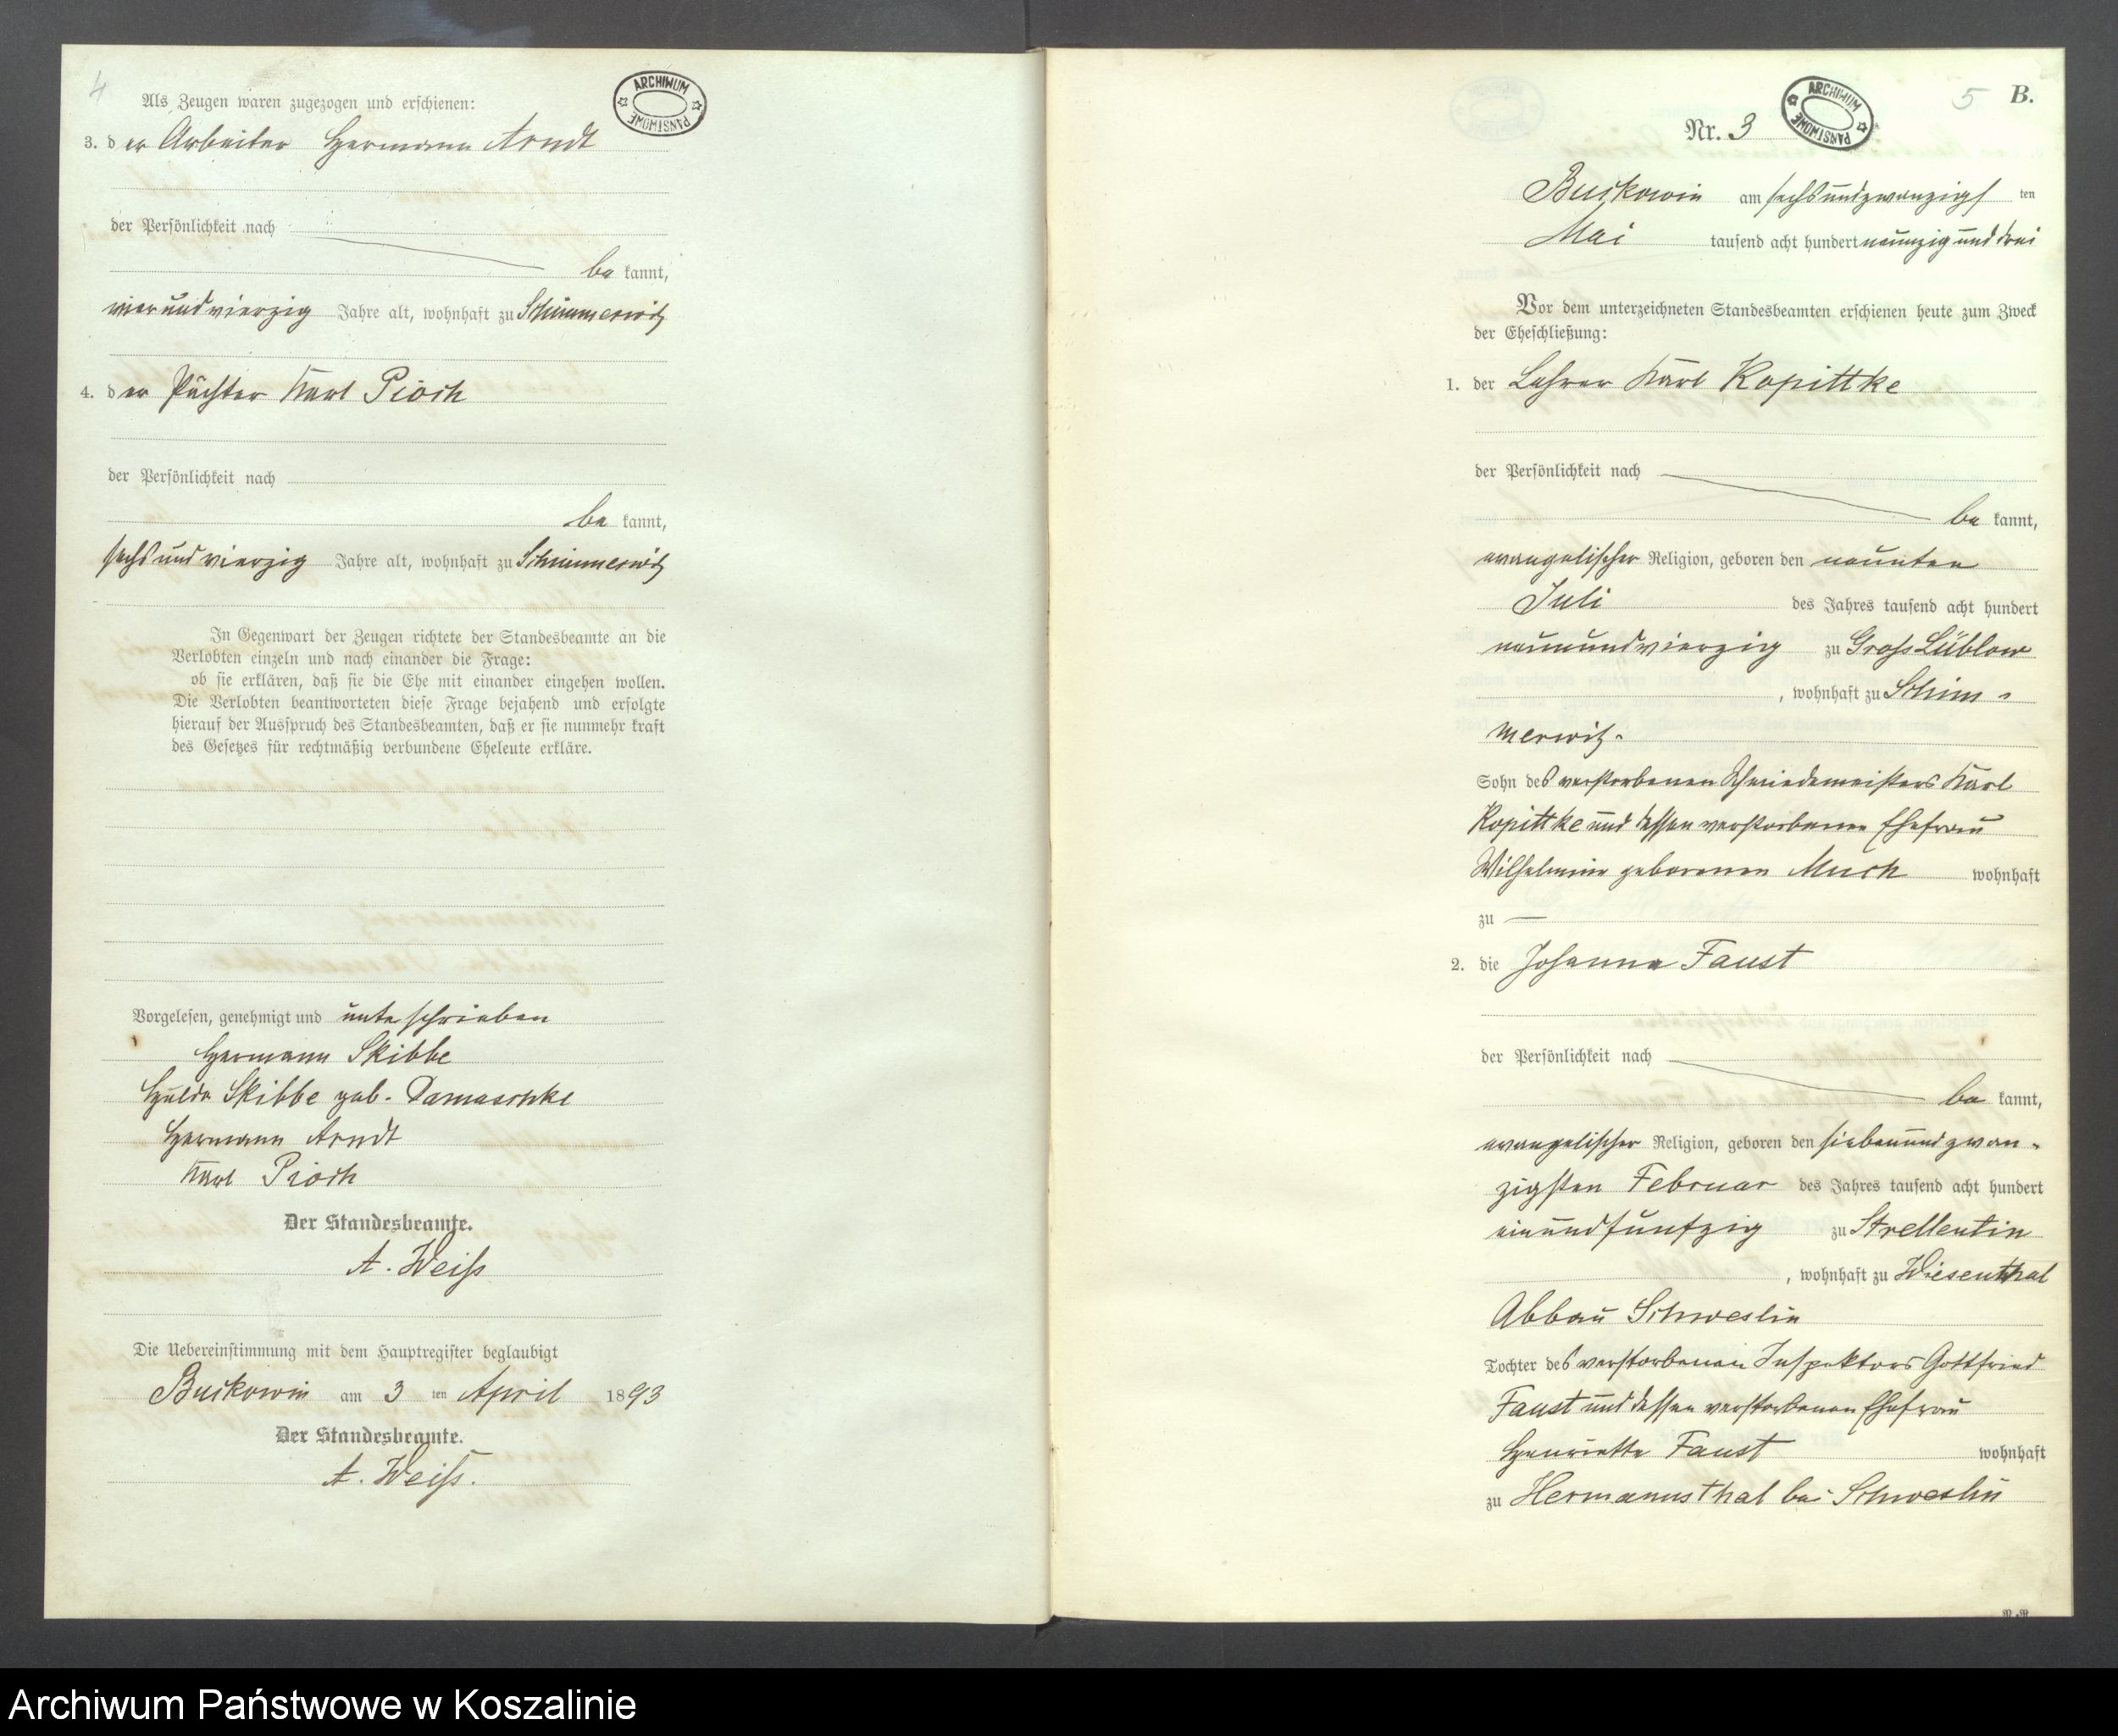 4
ARCHIWUM PAŃSTWOWE
Als Zeugen waren zugezogen und erschienen:
3. der Arbeiter Hermann Arndt
der Persönlichkeit nach
be kannt,
vierundvierzig Jahre alt, wohnhaft zu Schimmerwitz
4. der Pächter Karl Pioch
der Persönlichkeit nach
be kannt,
sechsundvierzig Jahre alt, wohnhaft zu Schimmerwitz
In Gegenwart der Zeugen richtete der Standesbeamte an die
Verlobten einzeln und nach einander die Frage:
ob sie erklären, daß sie die Ehe mit einander eingehen wollen.
Die Verlobten beantworteten diese Frage bejahend und erfolgte
hierauf der Ausspruch des Standesbeamten, daß er sie nunmehr kraft
des Gesetzes für rechtmäßig verbundene Eheleute erkläre.
Vorgelesen, genehmigt und unterschrieben
Hermann Skibbe
Hulda Skibbe geb. Damaschke
Hermann Arndt
Karl Pioch
Der Standesbeamte.
A. Weiss
Die Uebereinstimmung mit dem Hauptregister beglaubigt
Buckowin am 3 ten April 1893
Der Standesbeamte.
A. Weiss.
5 B.
ARCHIWUM PAŃSTWOWE
Nr. 3
Buckowin am sechsundzwanzigsten
Mai tausend acht hundert neunzig und drei
Vor dem unterzeichneten Standesbeamten erschienen heute zum Zweck
der Eheschließung:
1. der Lehrer Karl Kopittke
der Persönlichkeit nach
be kannt,
evangelischer Religion, geboren den neunten
Juli des Jahres tausend acht hundert
neunundvierzig zu Gross Lüblow
, wohnhaft zu Schim-
merwitz.
Sohn des verstorbenen Schmiedemeisters Karl
Kopittke und dessen verstorbenen Ehefrau
Wilhelmine geborenen Much wohnhaft
zu —
2. die Johanna Faust
der Persönlichkeit nach
be kannt,
evangelischer Religion, geboren den siebenundzwan-
zigsten Februar des Jahres tausend acht hundert
einundfünfzig zu Strellentin
, wohnhaft zu Wiesenthal
Abbau Schweslin
Tochter des verstorbenen Inspektors Gottfried
Faust und dessen verstorbenen Ehefrau
Henriette Faust wohnhaft
zu Hermannsthal bei Schweslin
Archiwum Państwowe w Koszalinie